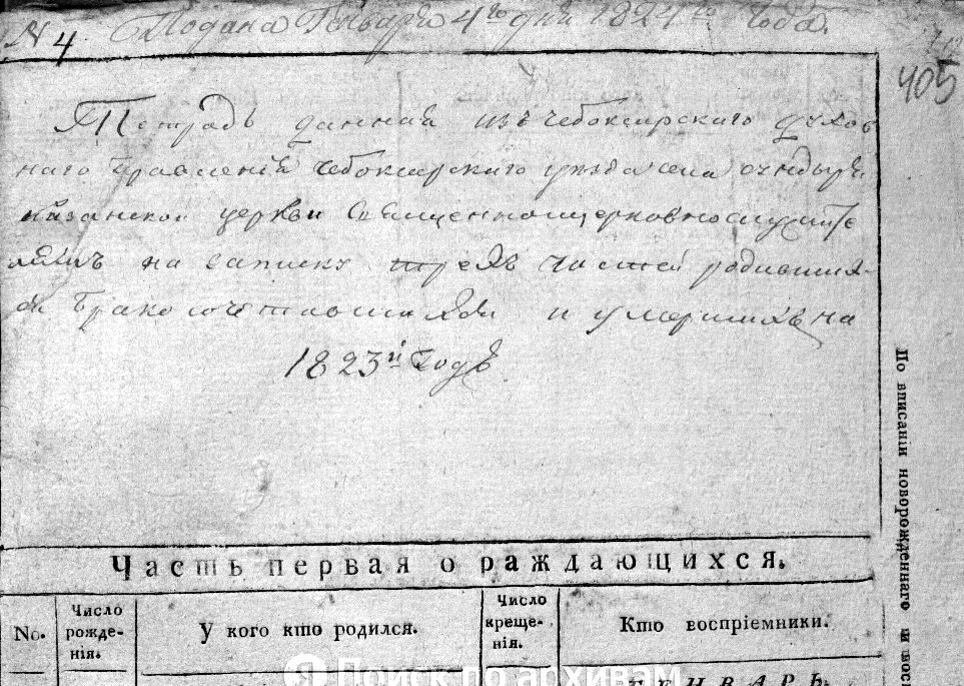 N 4. Подана Генваря 4го дня 1824го Года.
405
Тетрадь данная изъ чебоксарскаго духов
наго Правленія чебоксарскаго уезда села
казанской церкви Священноцерковнослужите
лямъ на записку трехъ частей родивших
ся бракосочетавшихся и умершихъ на
1823й Годъ
Часть первая о раждающихся.
No.
Число рожде-
нія.
У кого кто родился.
Число
креще-
нія.
Кто воспріемники.
ГЕНВАРЬ.
По вписаніи новорожденнаго и вос
Поиск по архивам